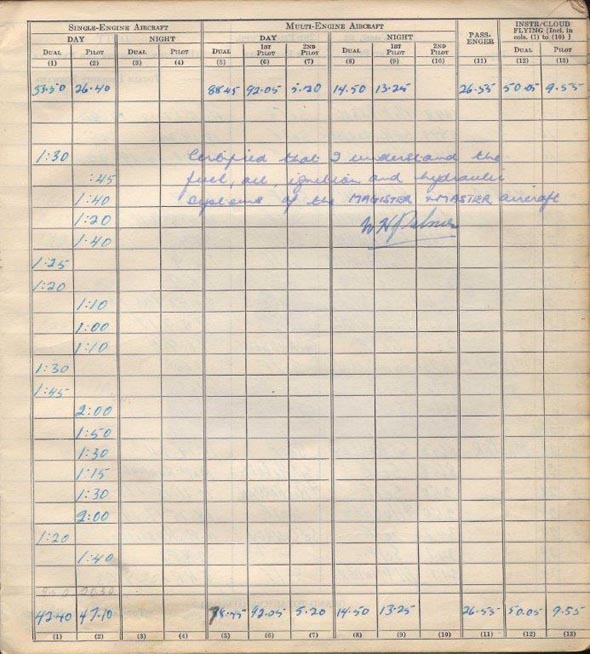 SINGLE-ENGINE AIRCRAFT MULTI-ENGINE AIRCRAFT PASS-ENGER INSTR/CLOUD FLYING [Incl. in cols. (1) to (10)]
DAY NIGHT DAY NIGHT
DUAL PILOT DUAL PILOT DUAL 1ST PILOT 2ND PILOT DUAL 1ST PILOT 2ND PILOT DUAL PILOT
(1) (2) (3) (4) (5) (6) (7) (8) (9) (10) (11) (12) (13)
26.40 88.45 92.05 5.20 14.50 13.25 26.55 50.05 9.55
1:30 Certified that I understand the
:45 fuel, oil, ignition and hydraulic
1:40 systems of the MAGISTER & MASTER aircraft
1:20
1:40
1:25
1:20
1:10
1:00
1:10
1:30
1:45
2:00
1:50
1:30
1:15
1:30
2:00
1:20
1:40
42.40 47.10 92.05 5.20 14.50 13.25 26.55 50.05 9.55
(1) (2) (3) (4) (5) (6) (7) (8) (9) (10) (11) (12) (13)